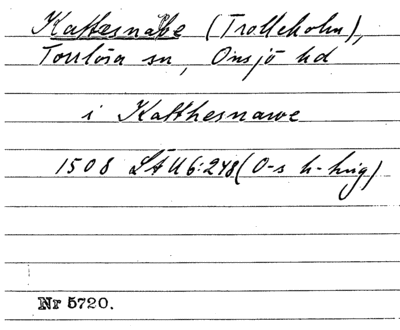 Kattesnabbe (Trolleholm),
Torrlösa sn, Onsjö hd
i Katthesnawe
1508 LÅU 6:248 (O-s h-hng)
Nr 5720.